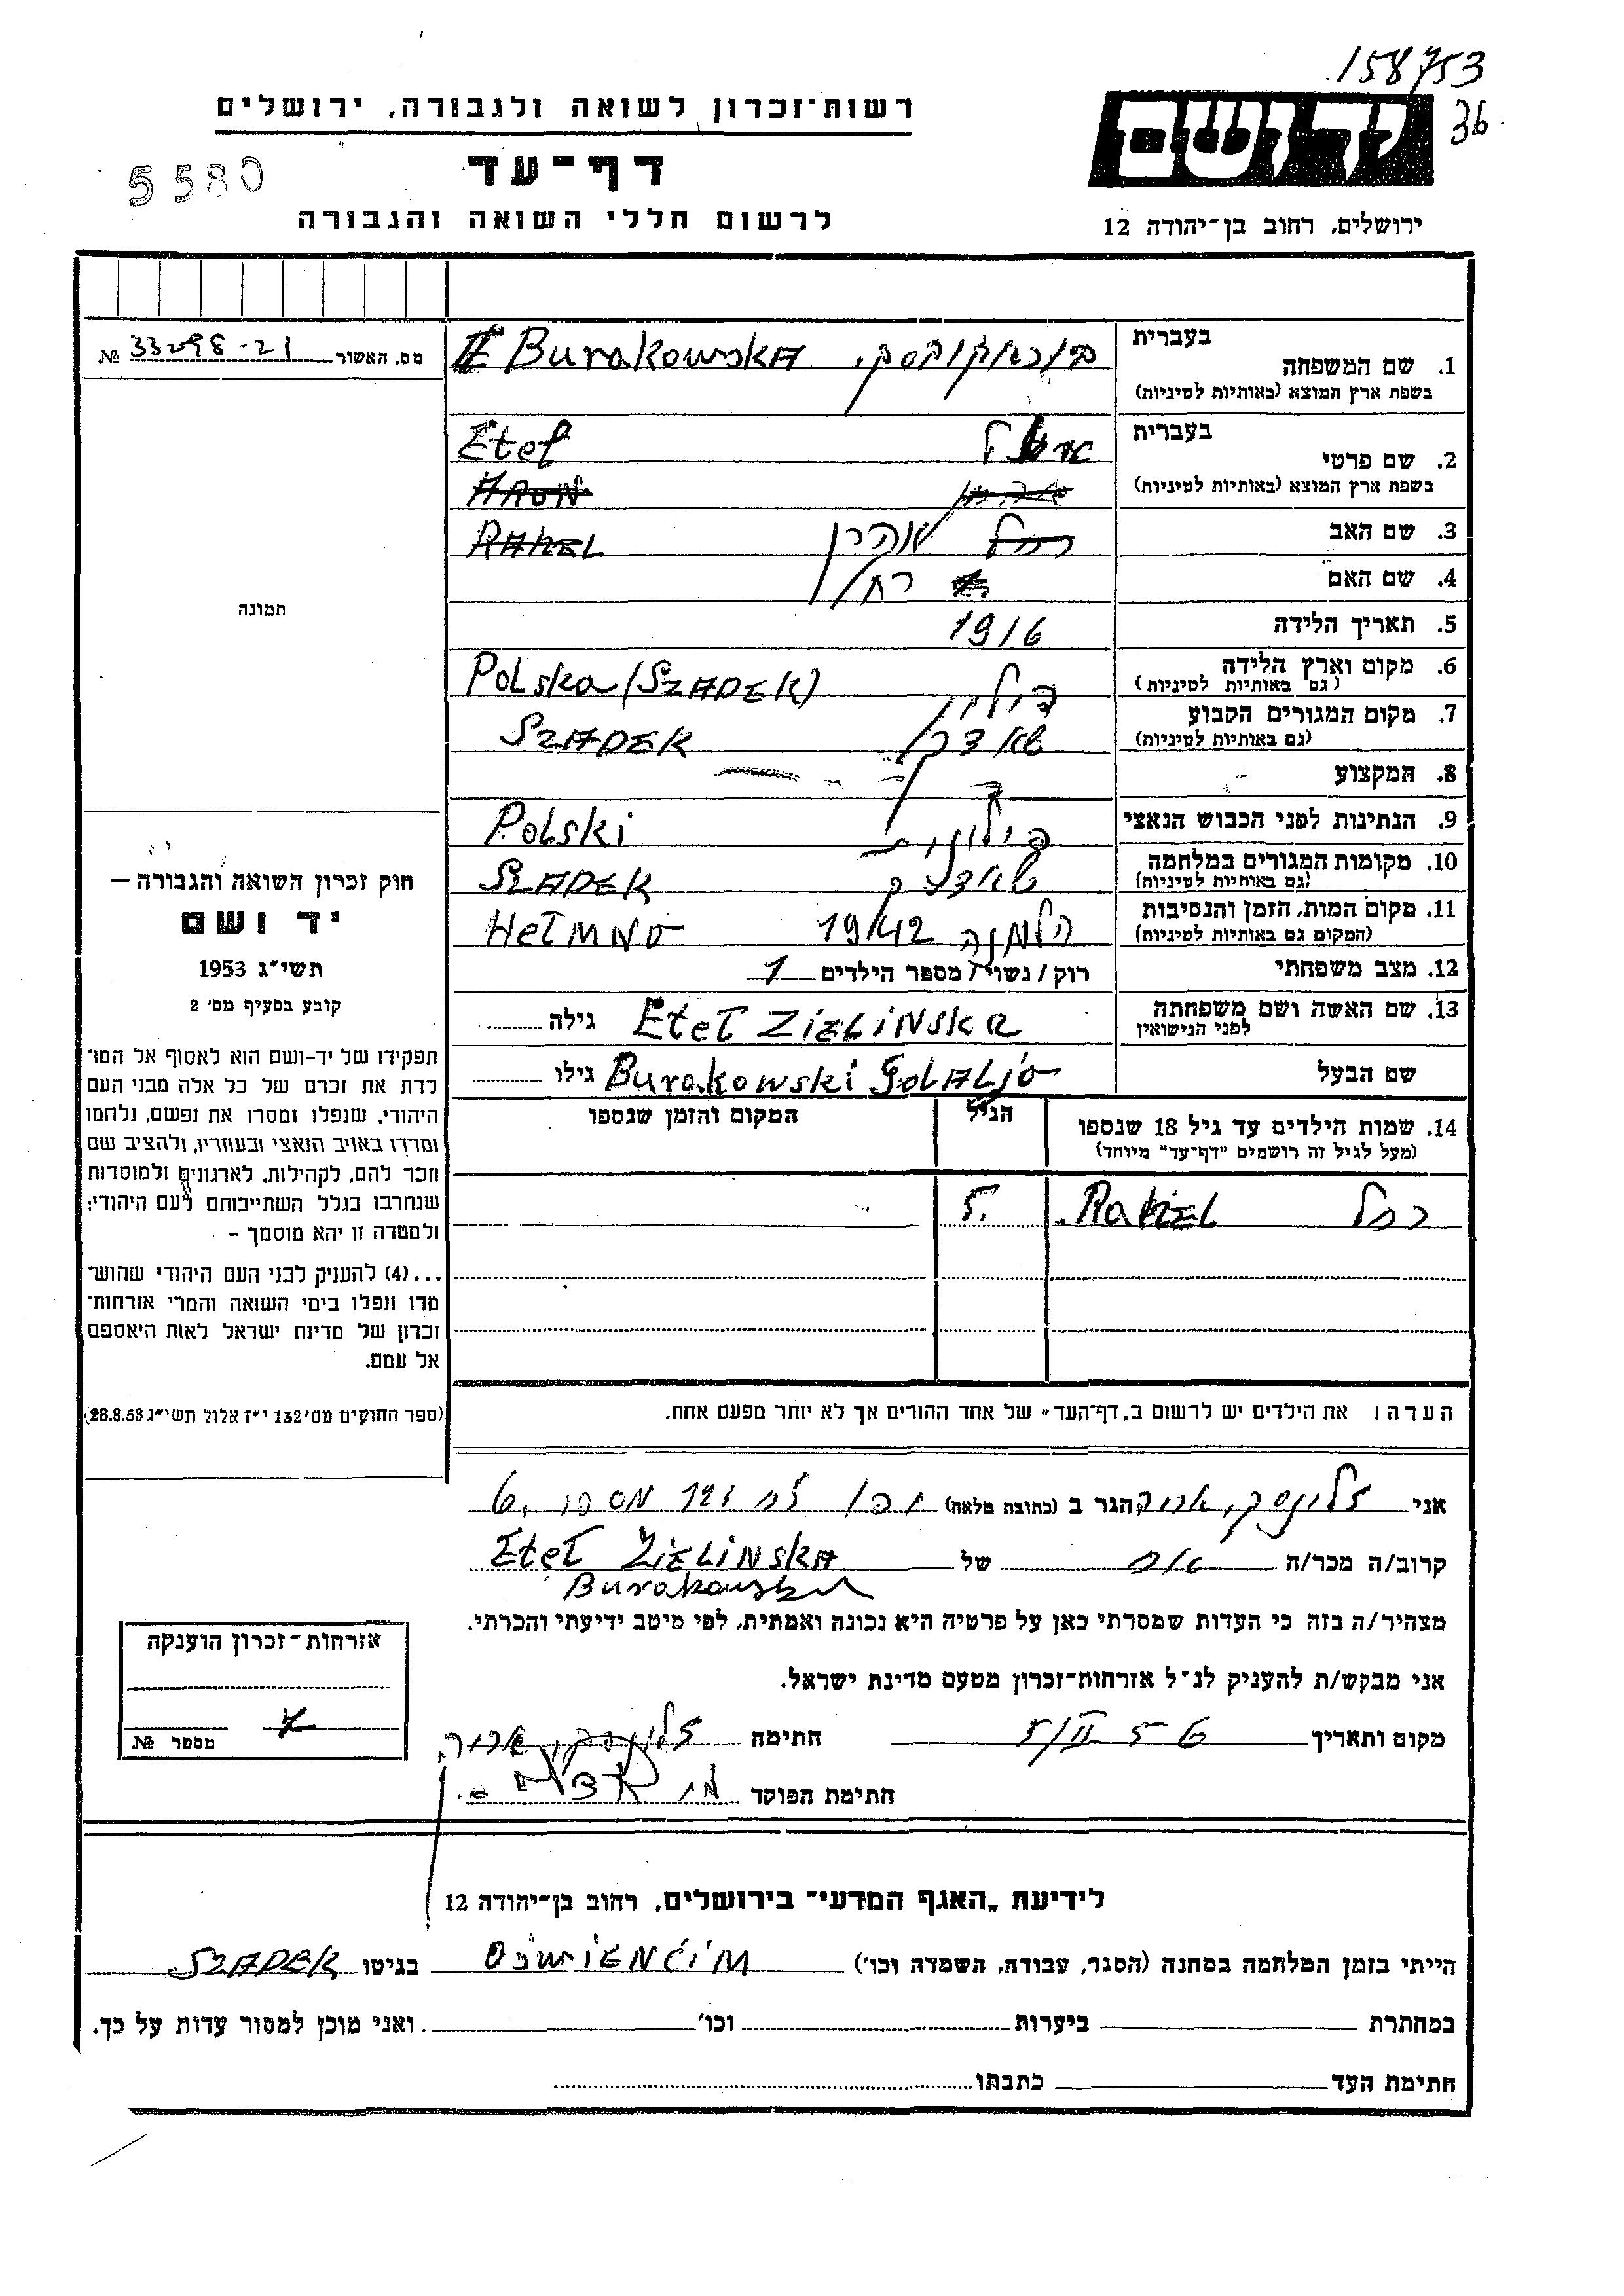 158753
36
ידושם
רשות־זכרון לשואה ולגבורה, ירושלים
דף־עד
5580
לרשום חללי השואה והגבורה
ירושלים, רחוב בן־יהודה 12
מס. האשור 33298-21 №
בעברית
1. שם המשפחה Burakowska
בשפת ארץ המוצא (באותיות לטיניות)
בעברית
2. שם פרטי Etel
בשפת ארץ המוצא (באותיות לטיניות) ARON
3. שם האב רחל אהרן RAHEL
4. שם האם
5. תאריך הלידה 1916
6. מקום וארץ הלידה פולין Polska (SZADEK)
(גם באותיות לטיניות)
7. מקום המגורים הקבוע SZADEK
(גם באותיות לטיניות)
8. המקצוע
9. הנתינות לפני הכבוש הנאצי Polski
10. מקומות המגורים במלחמה SZADEK
(גם באותיות לטיניות)
11. מקום המות, הזמן והנסיבות הלמנה 1942 HelMNO
(המקום גם באותיות לטיניות)
12. מצב משפחתי רוק/נשוי/מספר הילדים 1
13. שם האשה ושם משפחתה Etel ZIELINSKA גילה
לפני הנישואין
שם הבעל Burakowski גילו
14. שמות הילדים עד גיל 18 שנספו הגיל המקום והזמן שנספו
(מעל לגיל זה רושמים "דף־עד" מיוחד)
רחל RaHEL 5.
הערה: את הילדים יש לרשום ב„דף־העד" של אחד ההורים אך לא יותר מפעם אחת.
תמונה
חוק זכרון השואה והגבורה —
יד ושם
תשי״ג 1953
קובע בסעיף מס׳ 2
תפקידו של יד-ושם הוא לאסוף אל המו־
לדת את זכרם של כל אלה מבני העם
היהודי, שנפלו ומסרו את נפשם, נלחמו
ומרדו באויב הנאצי ובעוזריו, ולהציב שם
וזכר להם, לקהילות, לארגונים ולמוסדות
שנחרבו בגלל השתייכותם לעם היהודי;
ולמטרה זו יהא מוסמך —
...(4) להעניק לבני העם היהודי שהוש־
מדו ונפלו בימי השואה והמרי אזרחות־
זכרון של מדינת ישראל לאות היאספם
אל עמם.
(ספר החוקים מס׳ 132 י״ז אלול תשי״ג 28.8.53)
אני הגר ב (כתובת מלאה)
קרוב/ה מכר/ה של Etel ZIELINSKA
Burakowska
מצהיר/ה בזה כי העדות שמסרתי כאן על פרטיה היא נכונה ואמתית, לפי מיטב ידיעתי והכרתי.
אני מבקש/ת להעניק לנ״ל אזרחות־זכרון מטעם מדינת ישראל.
מקום ותאריך 5/II 56 חתימה
חתימת הפוקד
אזרחות־זכרון הוענקה
מספר №
לידיעת „האגף המדעי" בירושלים, רחוב בן־יהודה 12
הייתי בזמן המלחמה במחנה (הסגר, עבודה, השמדה וכו׳) OśWIENCiM בגיטו SZADEK
במחתרת ביערות וכו׳ ואני מוכן למסור עדות על כך.
חתימת העד כתבתו